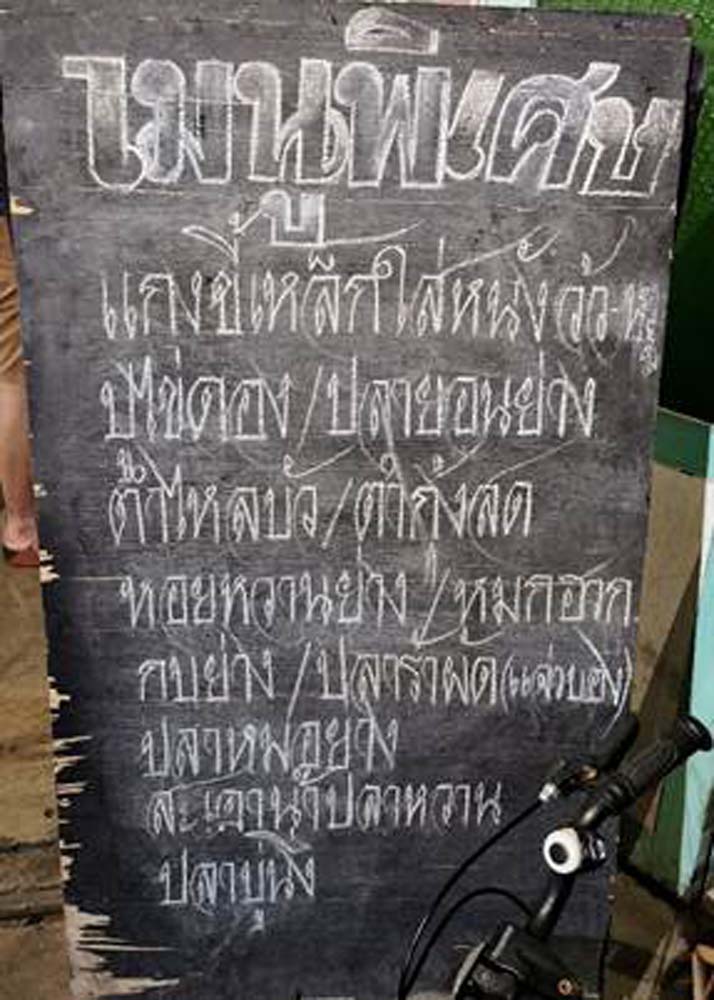 เมนูพิเศษ
แกงขี้เหล็กใส่หนังวัว
ปูไข่ดอง/ปลายอนย่าง
ตำไหลบัว/ตำกุ้งสด
หอยหวานย่าง/หมกฮวก
กบย่าง/ปลาร้าผัด(แจ่วบอง)
ปลาหมอย่าง
สะเดาน้ำปลาหวาน
ปลาบู่นึ่ง